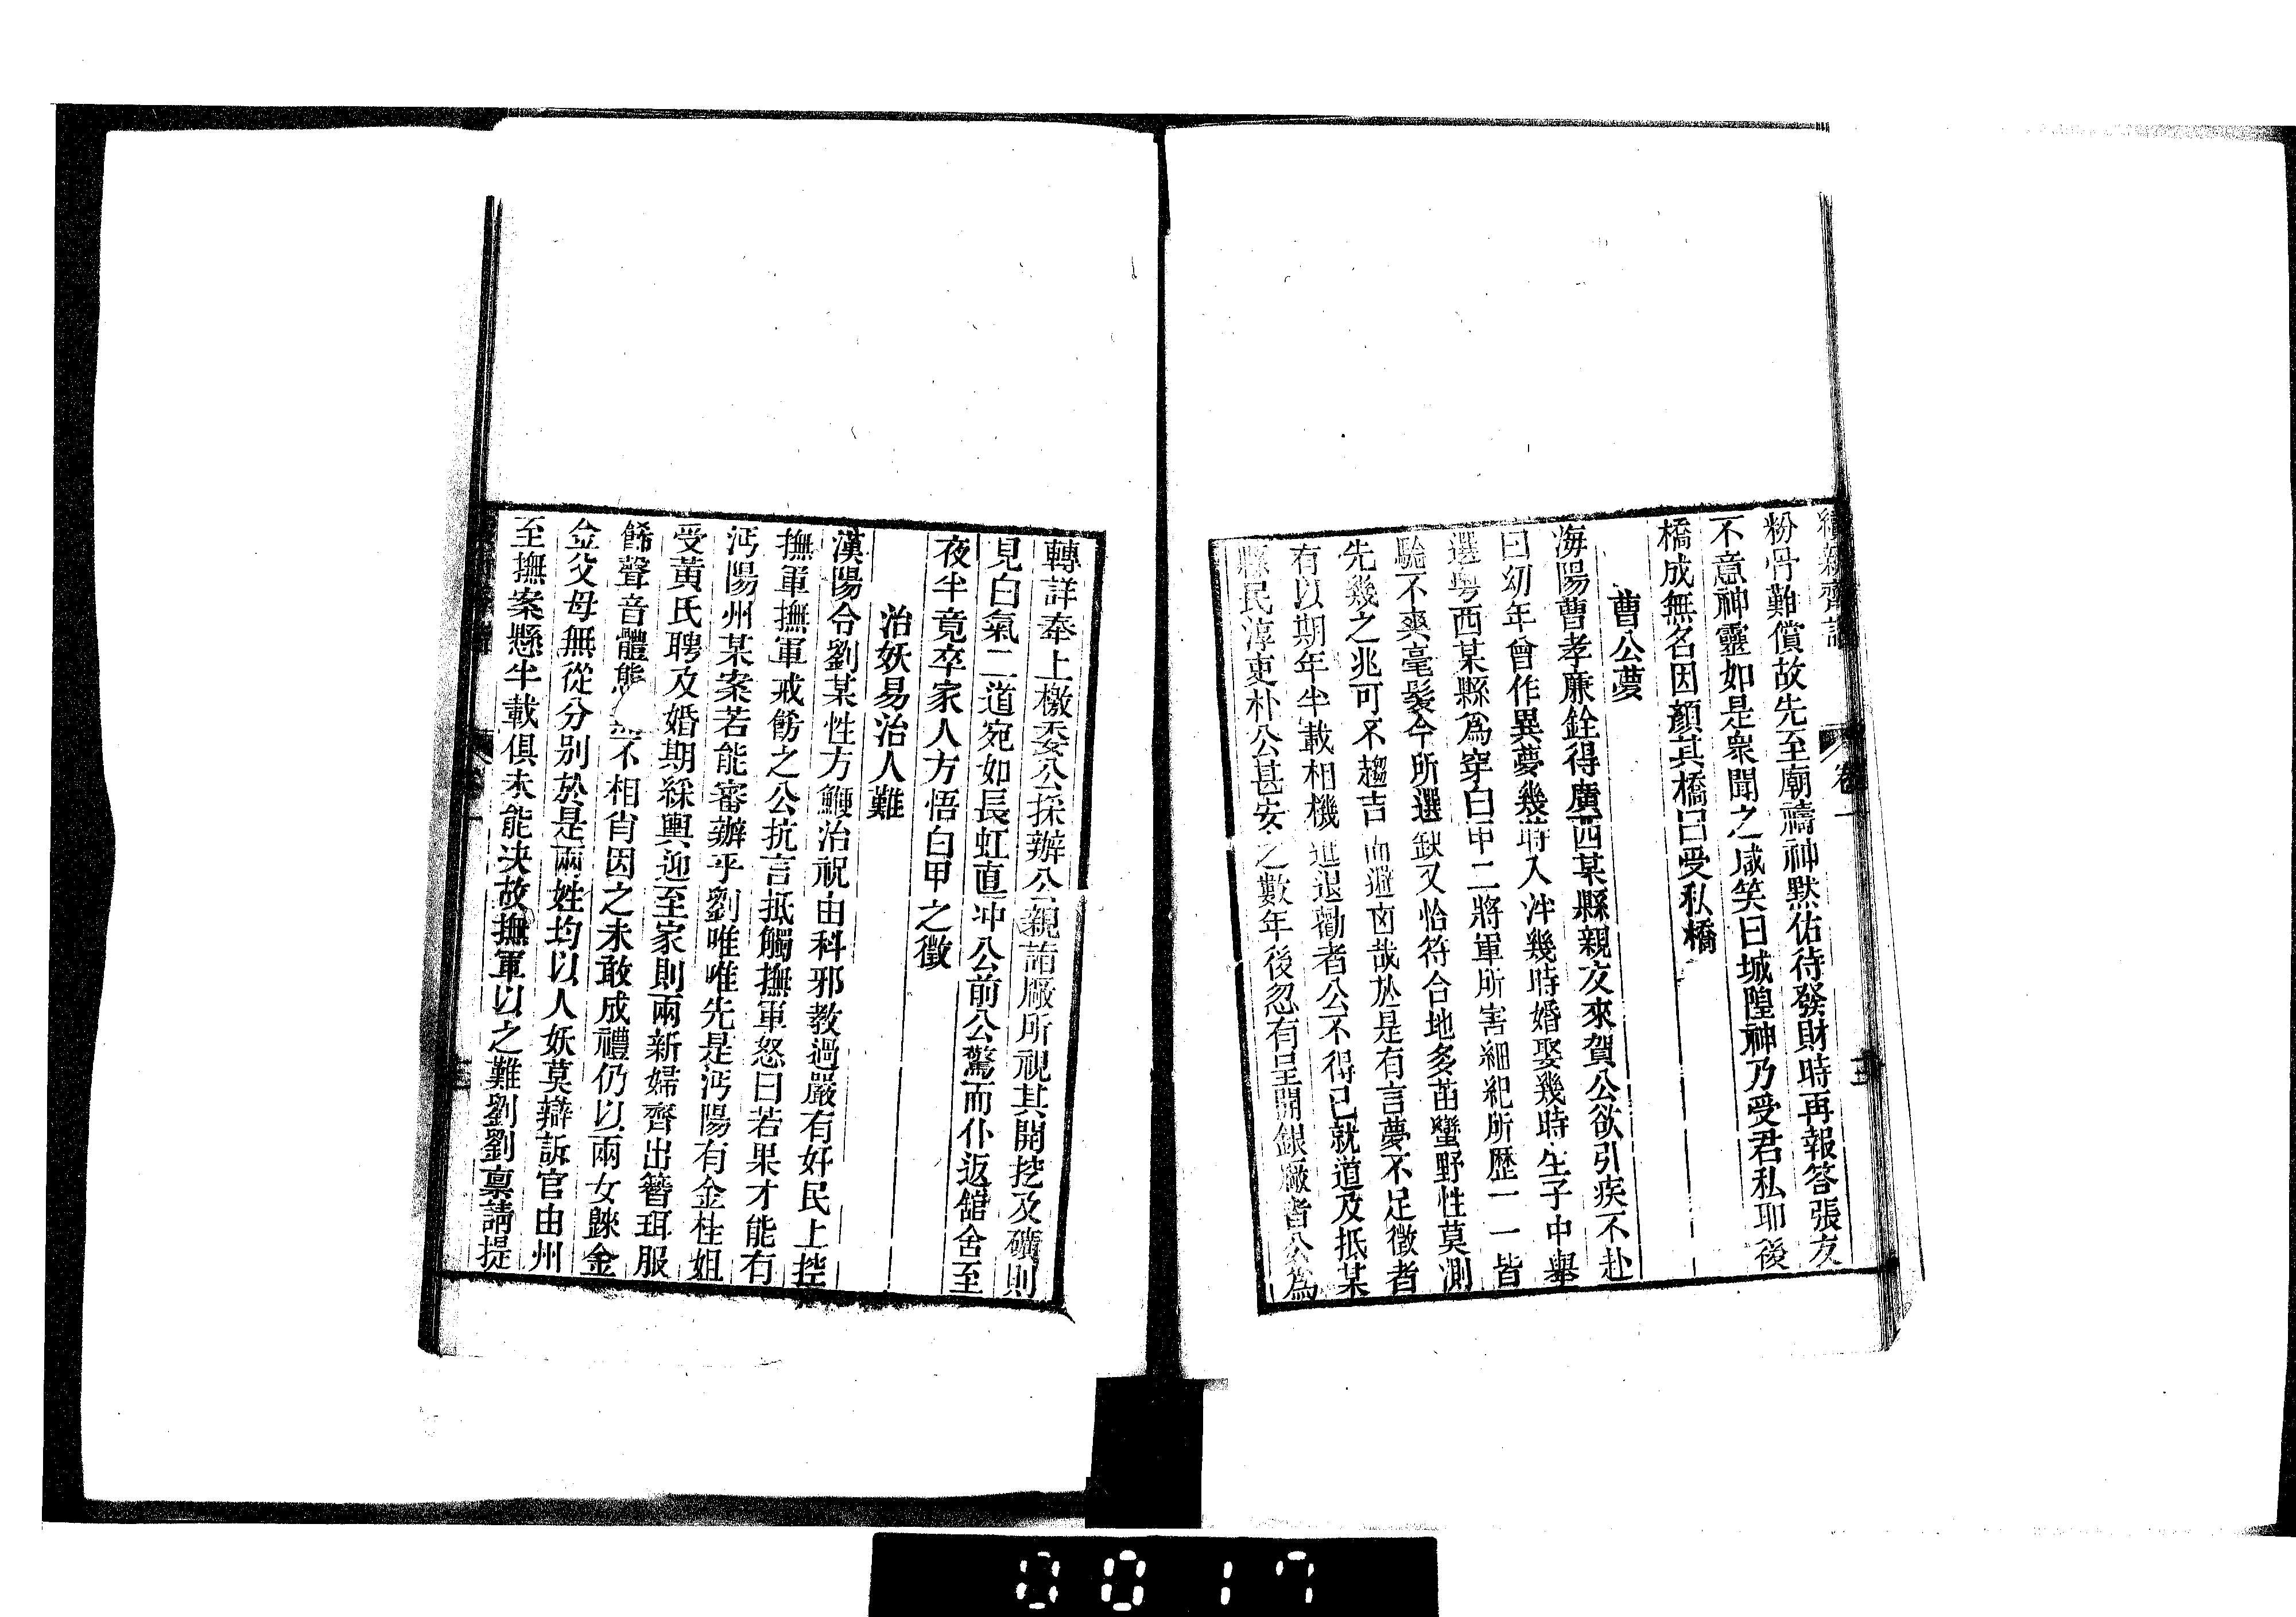 續新齊諧 卷一 十三
粉骨難償故先至廟禱神默佑待發財時再報答張友
不意神靈如是衆聞之咸笑曰城隍神乃受君私耶後
橋成無名因顏其橋曰受私橋
曹公夢
海陽曹孝廉銓得廣西某縣親友來賀公欲引疾不赴
曰幼年曾作異夢幾時入泮幾時婚娶幾時生子中舉
選粤西某縣爲穿白甲二將軍所害細紀所歷一一皆
驗不爽毫髮今所選缺又恰符合地多苗蠻野性莫測
先幾之兆可不趨吉而避凶哉於是有言夢不足徵者
有以期年半載相機進退勸者公不得已就道及抵某
縣民淳吏朴公甚安之數年後忽有呈開銀廠者公爲
轉詳奉上檄委公採辦公親詣廠所視其開挖及礦則
見白氣二道宛如長虹直冲公前公驚而仆返舘舍至
夜半竟卒家人方悟白甲之徵
治妖易治人難
漢陽令劉某性方鯁治祝由科邪教過嚴有奸民上控
撫軍撫軍戒飭之公抗言抵觸撫軍怒曰若果才能有
沔陽州某案若能審辦乎劉唯唯先是沔陽有金桂姐
受黄氏聘及婚期綵輿迎至家則兩新婦齊出簪珥服
餙聲音體態 不相肖因之未敢成禮仍以兩女歸金
金父母無從分别於是兩姓均以人妖莫辯訴官由州
至撫案懸半載俱未能决故撫軍以之難劉劉稟請提